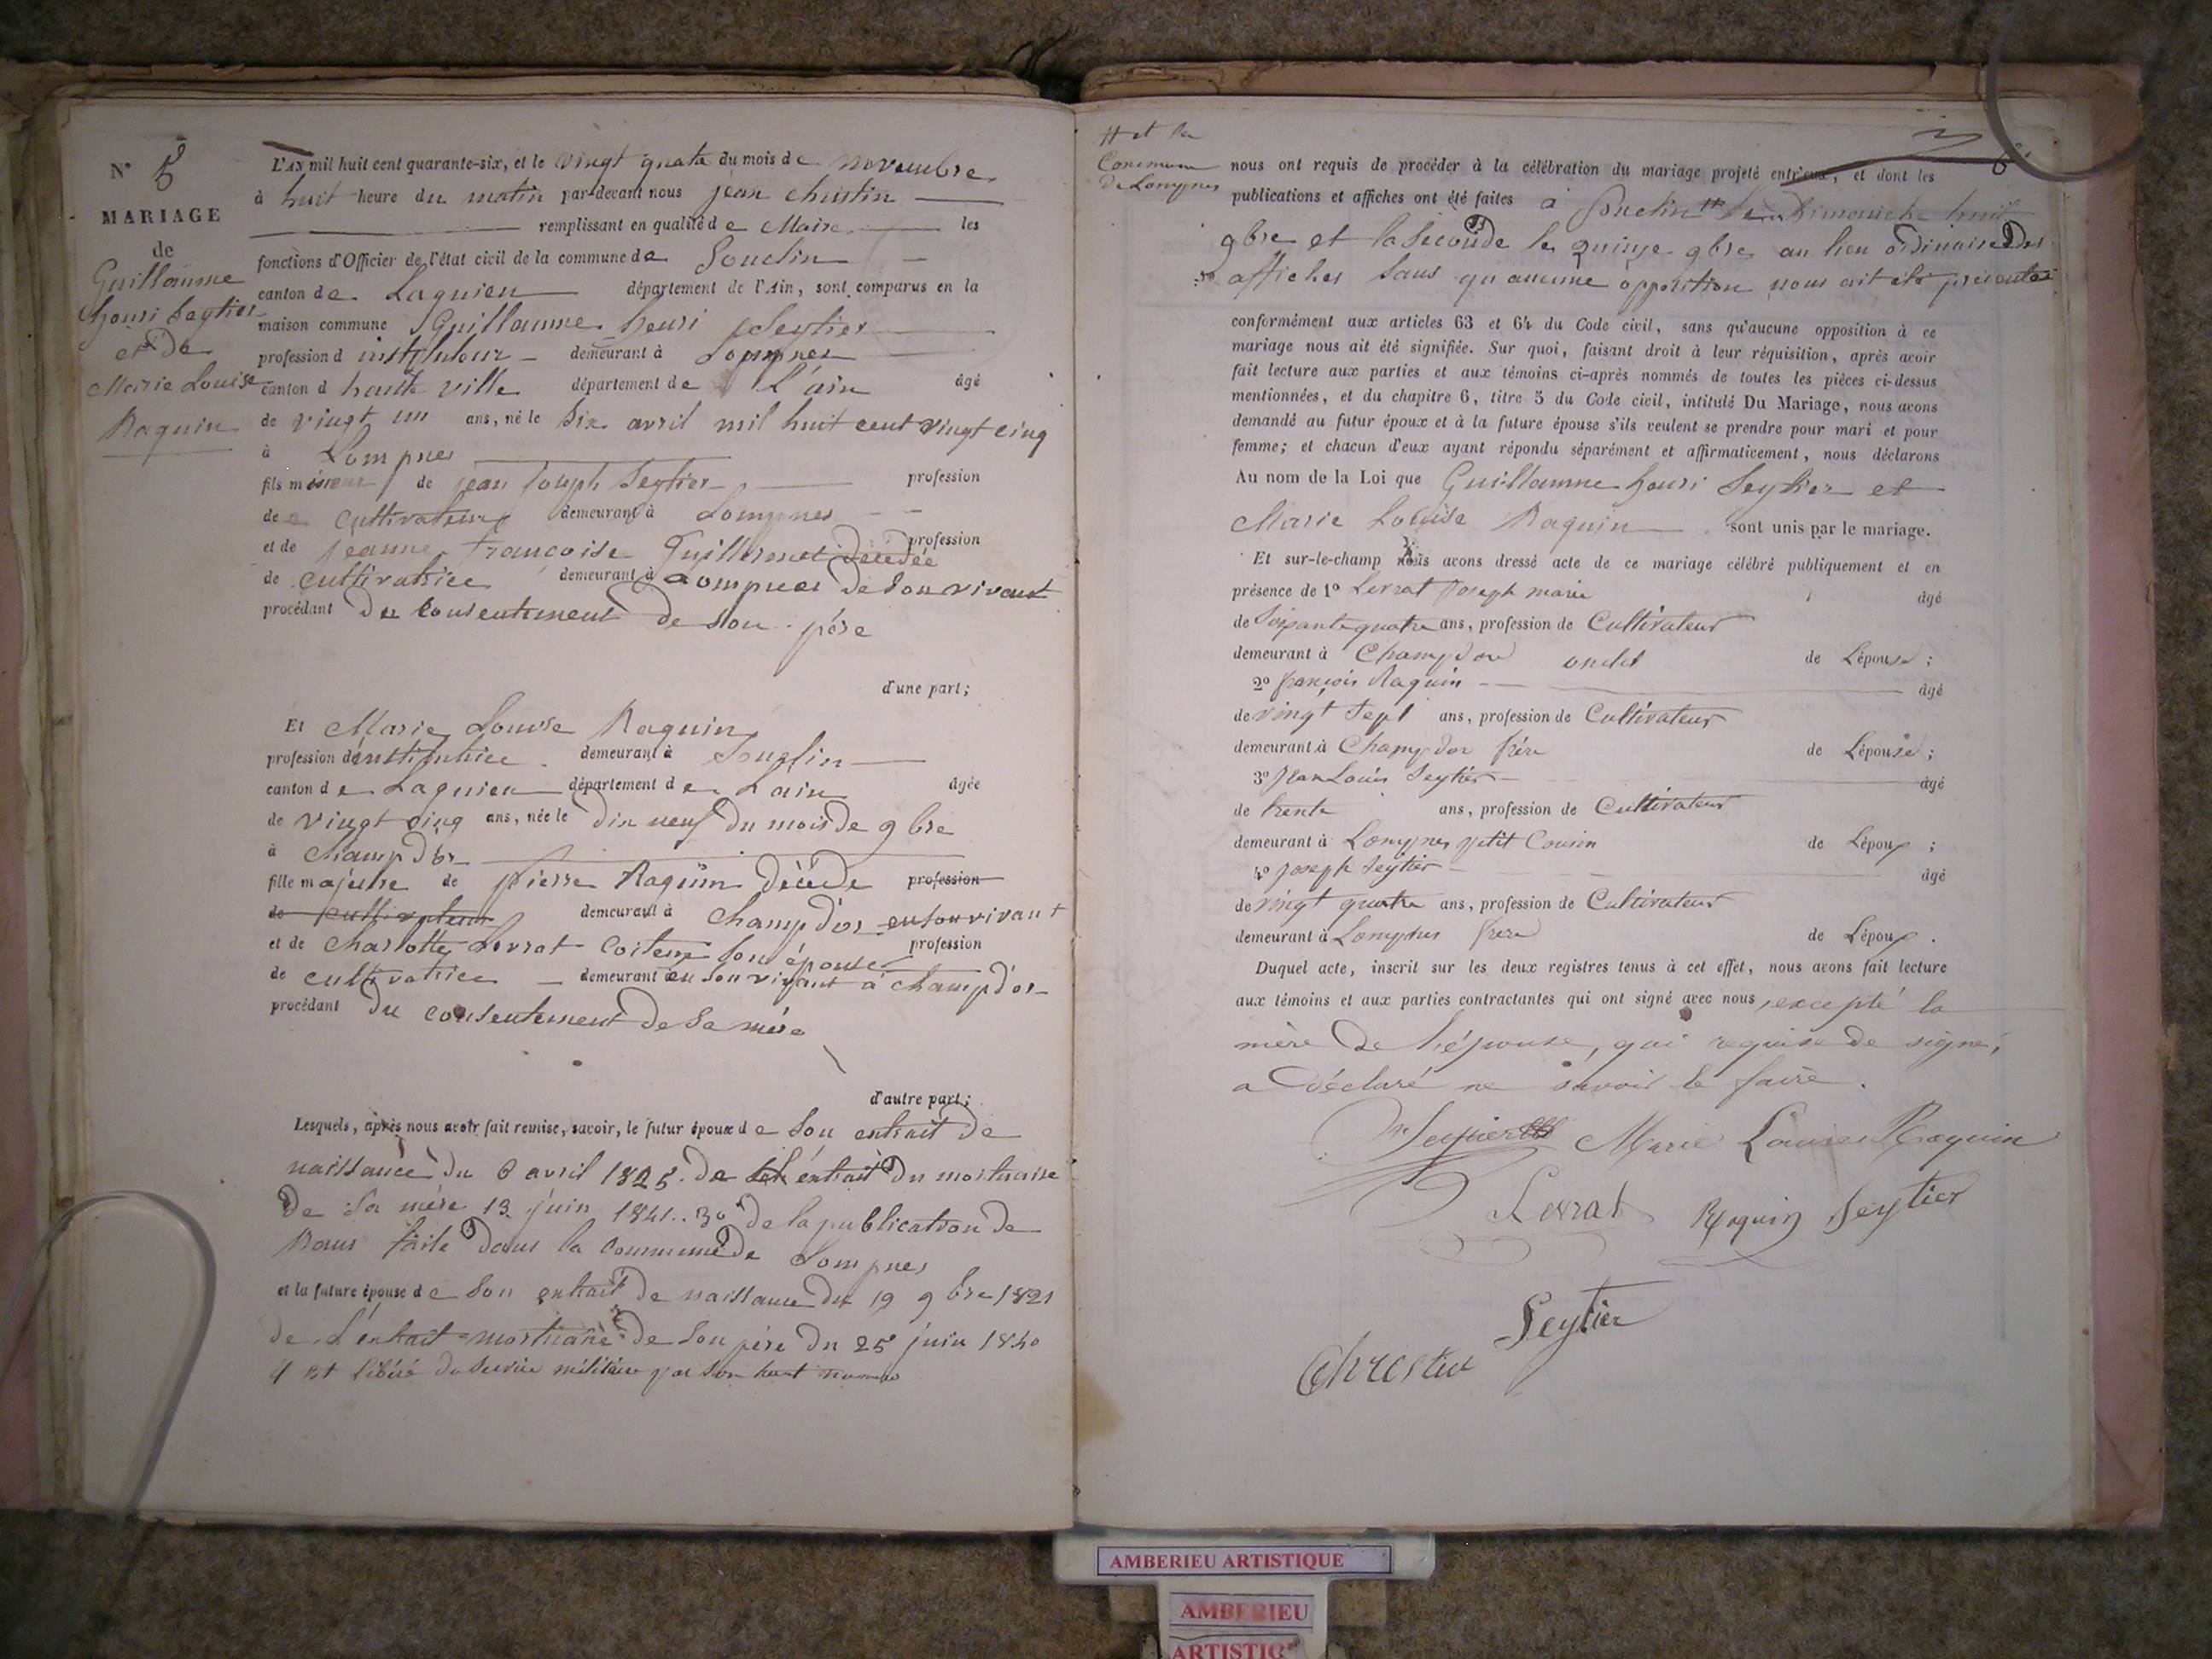 N° 5
MARIAGE
de
Guillaume
henri Seytier
et de
Marie Louise
Raquin
L'AN mil huit cent quarante-six, et le vingt quatre du mois de novembre
à huit heure du matin par-devant nous jean christin
remplissant en qualité de Maire les
fonctions d'Officier de l'état civil de la commune de Souclin
canton de Lagnieu département de l'Ain, sont comparus en la
maison commune Guillaume henri Seytier
profession d instituteur demeurant à Lompnes
canton d haute ville département de L'ain âgé
de vingt un ans, né le six avril mil huit cent vingt cinq
à Lompnes
fils mineur de jean joseph Seytier profession
de cultivateur demeurant à Lompnes
et de jeanne françoise Guillermet décédée profession
de cultivatrice demeurant à Lompnes de son vivant
procédant du consentement de son père
d'une part;
Et Marie Louise Raquin
profession d'institutrice demeurant à Souclin
canton de Lagnieu département de L'ain âgée
de vingt cinq ans, née le dix neuf du mois de 9bre
à champd'or
fille majeure de pierre Raquin décédé profession
de cultivateur demeurant à champd'or en son vivant
et de charlotte Levrat son épouse profession
de cultivatrice demeurant en son vivant à champd'or
procédant du consentement de sa mère
d'autre part;
Lesquels, après nous avoir fait remise, savoir, le futur époux de son extrait de
naissance du 6 avril 1825. de extrait du mortuaire
de sa mère 13 juin 1841.. 3° de la publication de
Bans faite dans la commune de Lompnes
et la future épouse de son extrait de naissance du 19 9bre 1821
de l'extrait mortuaire de son père du 25 juin 1840
il est libéré du service militaire par son haut numéro
# et la
Commune
de Lompnes
nous ont requis de procéder à la célébration du mariage projeté entr'eux, et dont les
publications et affiches ont été faites à Souclin # dimanche huit
9bre et la seconde le quinze 9bre au lieu ordinaire des
affiches sans qu'aucune opposition nous ait été présentée
conformément aux articles 63 et 64 du Code civil, sans qu'aucune opposition à ce
mariage nous ait été signifiée. Sur quoi, faisant droit à leur réquisition, après avoir
fait lecture aux parties et aux témoins ci-après nommés de toutes les pièces ci-dessus
mentionnées, et du chapitre 6, titre 5 du Code civil, intitulé Du Mariage, nous avons
demandé au futur époux et à la future épouse s'ils veulent se prendre pour mari et pour
femme; et chacun d'eux ayant répondu séparément et affirmativement, nous déclarons
Au nom de la Loi que Guillaume henri Seytier et
Marie Louise Raquin sont unis par le mariage.
Et sur-le-champ nous avons dressé acte de ce mariage célébré publiquement et en
présence de 1° Levrat Joseph marie âgé
de Soixante quatre ans, profession de Cultivateur
demeurant à Champdor oncle de L'épouse;
2° françois Raquin âgé
de vingt sept ans, profession de Cultivateur
demeurant à Champdor frère de L'épouse;
3° Jean Louis Seytier âgé
de trente ans, profession de Cultivateur
demeurant à Lompnes petit Cousin de L'époux;
4° joseph Seytier âgé
de vingt quatre ans, profession de Cultivateur
demeurant à Lompnes frère de L'époux.
Duquel acte, inscrit sur les deux registres tenus à cet effet, nous avons fait lecture
aux témoins et aux parties contractantes qui ont signé avec nous, excepté la
mère de l'épouse, qui requise de signé,
a déclaré ne savoir le faire.
Seytier Marie Louise Raquin
Levrat Raquin Seytier
Seytier
Chrestin
AMBERIEU ARTISTIQUE
AMBERIEU
ARTISTIQ